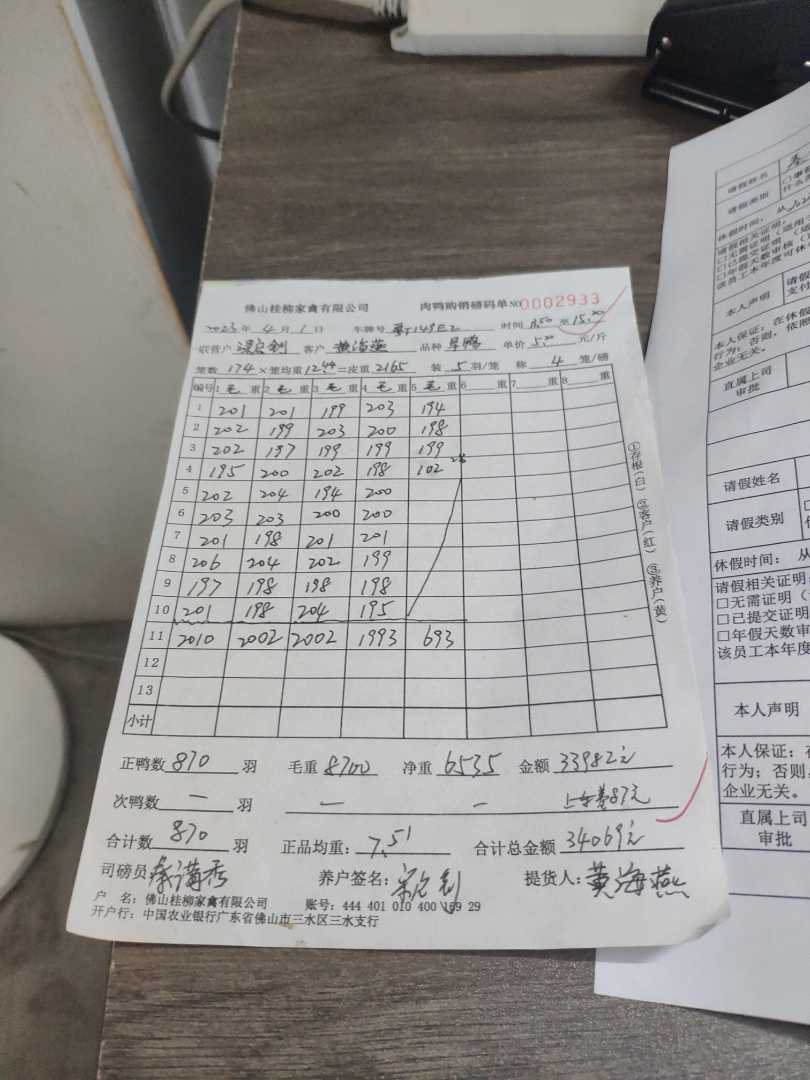 佛山桂柳家禽有限公司 肉鸭购销磅码单 NO 0002933
2023年 4月 1日 车牌号 时间 至15:20
客户 黄海燕 品种 单价 5.20 元/斤
笼数 174 ×笼均重 1244 =皮重 2165 装 5 羽/笼 称 4 笼/磅
编号 1 毛 重 2 毛 重 3 毛 重 4 毛 重 5 毛 重 6 重 7 重 8 重
1 201 201 199 203 194
2 202 199 203 200 198
3 202 197 199 199 199
4 195 200 202 198 102
5 202 204 194 200
6 203 203 200 200
7 201 198 201 201
8 206 204 202 199
9 197 198 198 198
10 201 198 204 195
11 2010 2002 2002 1993 693
12
13
小计
①存根(白) ②客户(红) ③养户(黄)
正鸭数 870 羽 毛重 8700 净重 6535 金额 33982元
次鸭数 — 羽 — — 87元
合计数 870 羽 正品均重: 7.51 合计总金额 34069元
司磅员 养户签名: 提货人: 黄海燕
户 名: 佛山桂柳家禽有限公司 账号: 444 401 010 400 159 29
开户行: 中国农业银行广东省佛山市三水区三水支行
请假姓名
请假类别
休假时间: 从
请假相关证明:
□无需证明
□已提交证明
□年假天数审核
该员工本年度可休
本人声明
本人保证: 在休假
行为; 否则, 依照
企业无关。
直属上司
审批
请假姓名
请假类别
休假时间: 从
请假相关证明
□无需证明
□已提交证明
□年假天数审
该员工本年度
本人声明
本人保证:
行为; 否则,
企业无关。
直属上司
审批